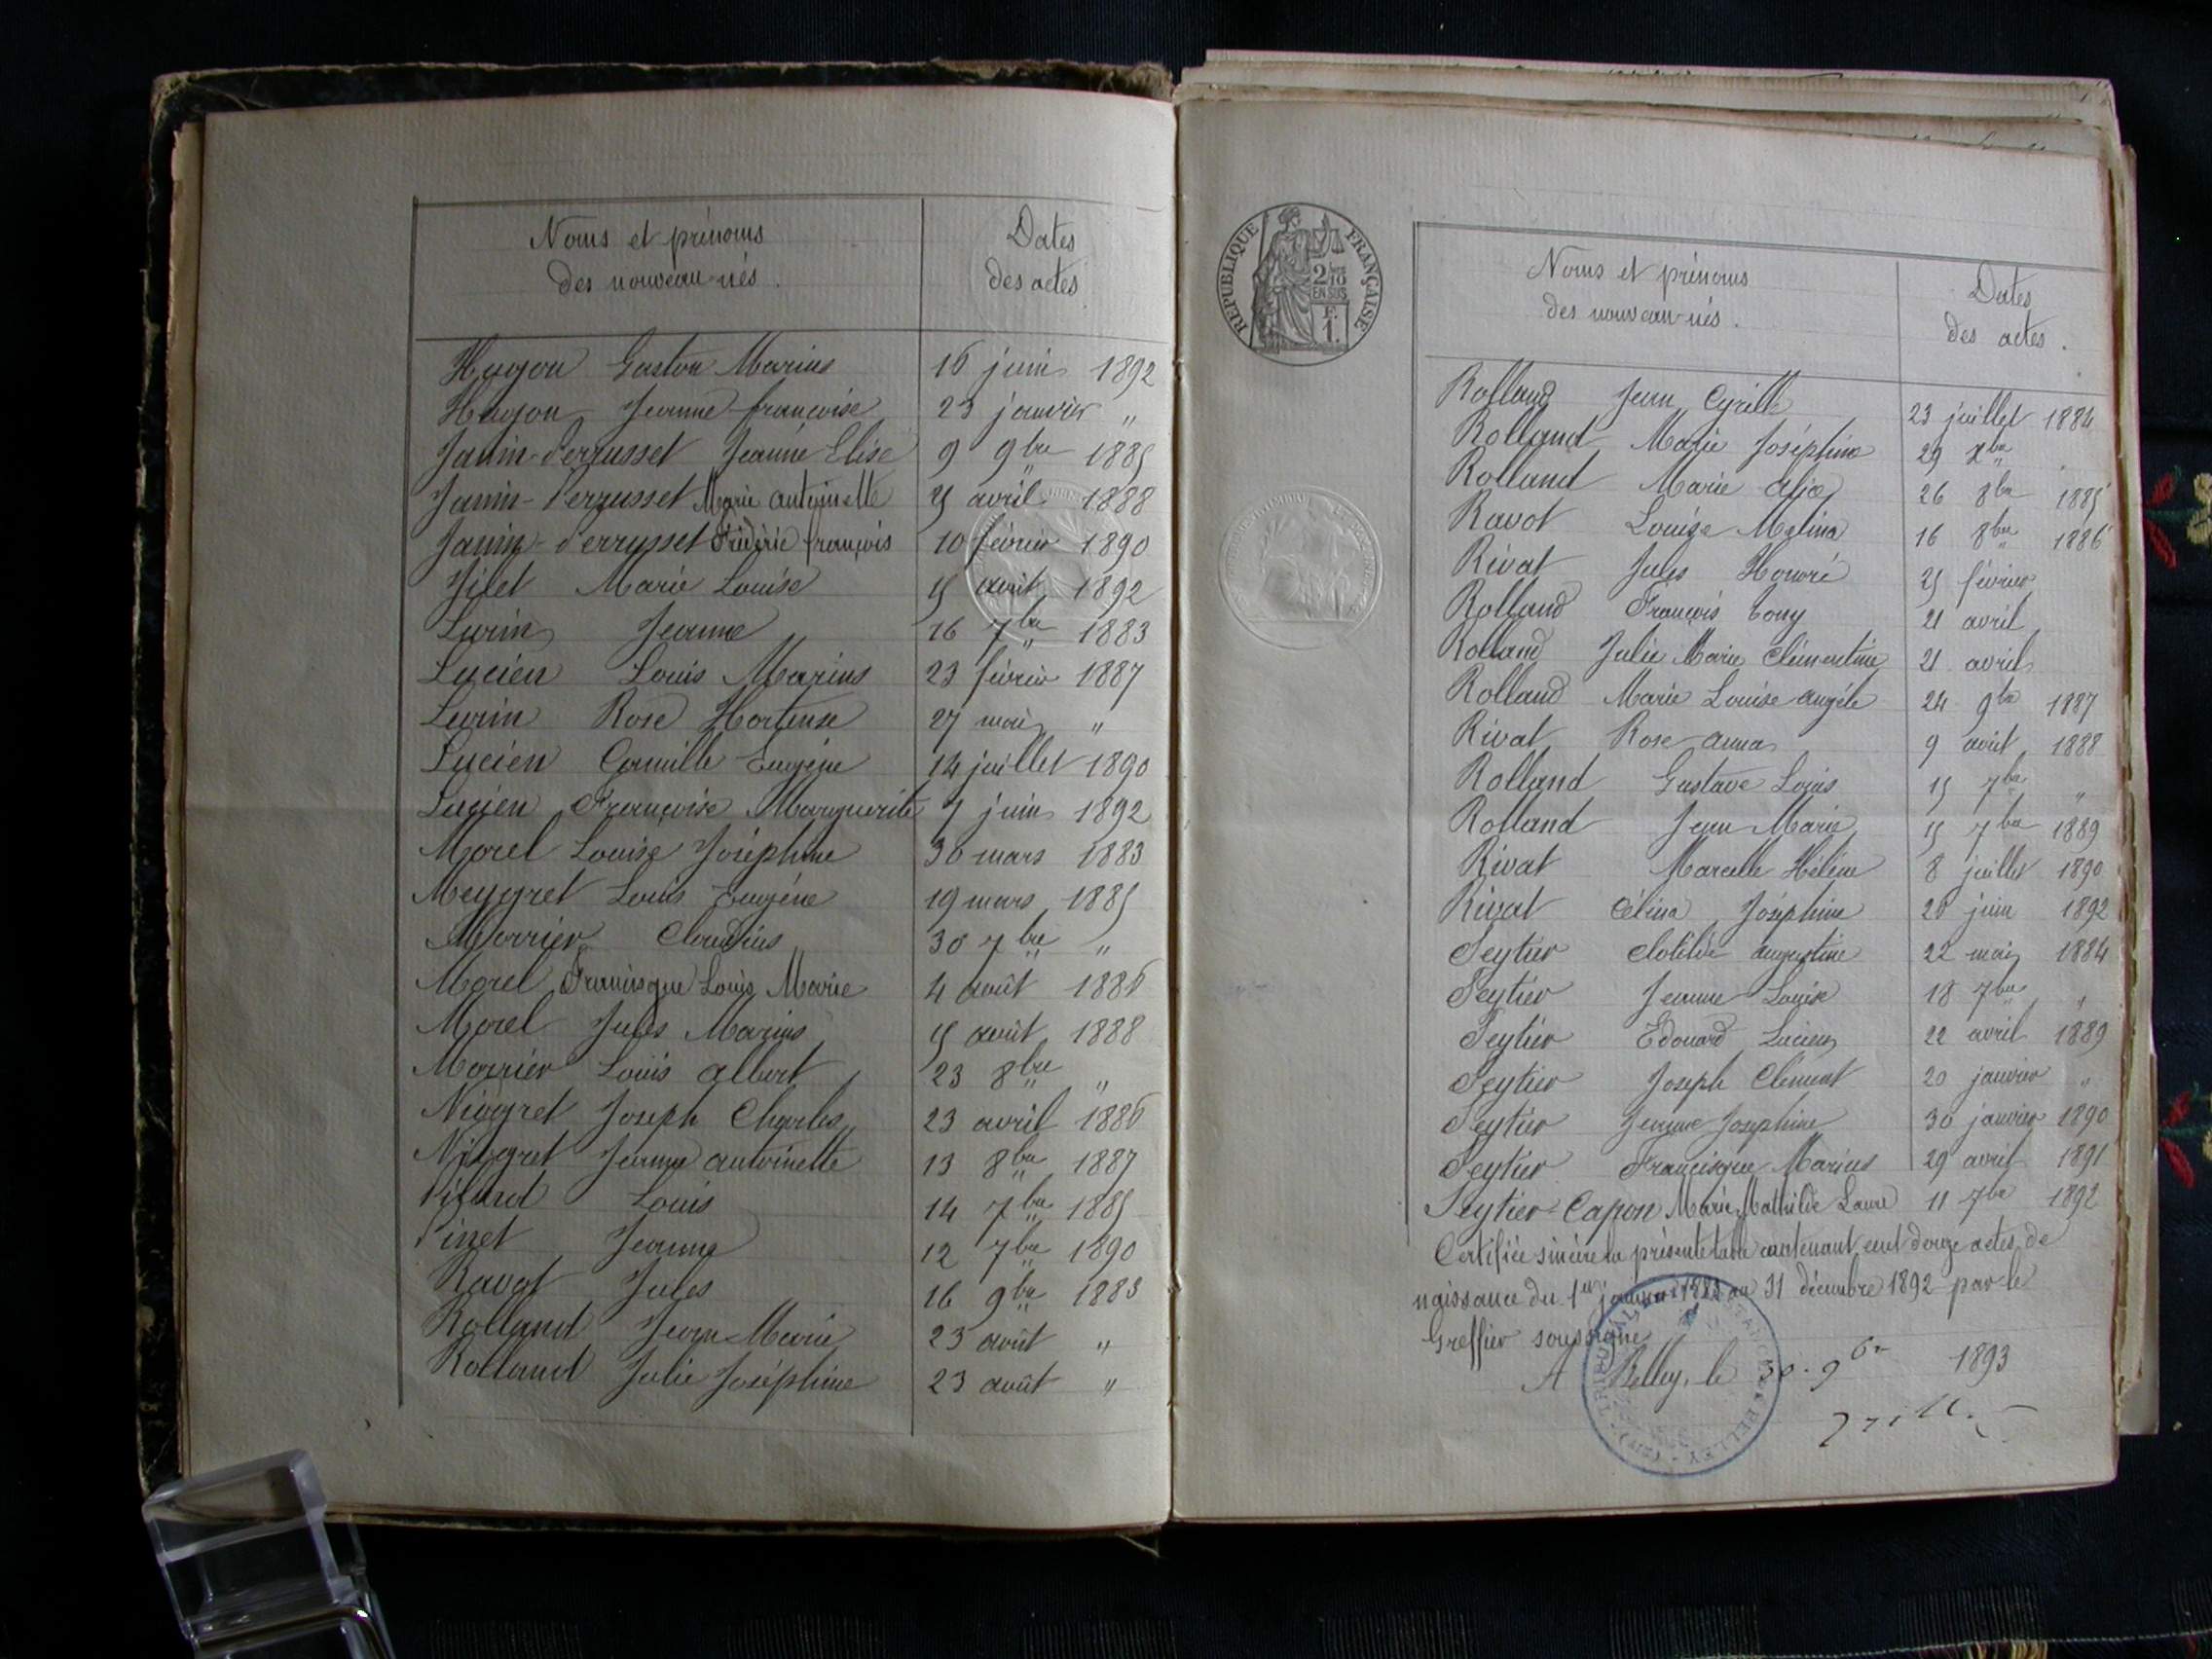 Noms et prénoms
des nouveau-nés.
Dates
des actes
Hugon Gaston Marius 16 juin 1892
Hugon Jeanne françoise 23 janvier "
Janin-Perrusset Jeanne Elise 9 9bre 1885
Janin-Perrusset Marie antoinette 25 avril 1888
Janin-Perrusset Frédéric françois 10 février 1890
Marie Louise 15 août 1892
Jeanne 16 7bre 1883
Lucien Louis Marius 23 février 1887
Rose Hortense 27 mai "
Lucien Camille Eugène 14 juillet 1890
Lucien Françoise Marguerite 7 juin 1892
Morel Louise Joséphine 30 mars 1883
Meygret Louis Eugène 19 mars 1885
Morrier Claudius 30 7bre "
Morel Francisque Louis Marie 4 août 1886
Morel Jules Marius 15 août 1888
Morrier Louis albert 23 8bre "
Niogret Joseph Charles 23 avril 1886
Niogret Jeanne antoinette 13 8bre 1887
Louis 14 7bre 1885
Pinet Jeanne 12 7bre 1890
Ravot Jules 16 9bre 1883
Rolland Jean-Marie 23 août "
Rolland Julie Joséphine 23 août "
REPUBLIQUE FRANÇAISE
2/10
EN SUS
F.
1.
Noms et prénoms
des nouveau-nés.
Dates
des actes.
Rolland Jean Cyrille 23 juillet 1884
Rolland Marie Joséphine 29 Xbre
Rolland Marie 26 8bre 1885
Ravot Louise Melina 16 8bre 1886
Rivat Jules Honoré 25 février
Rolland François Tony 21 avril
Rolland Julie Marie Clémentine 21 avril
Rolland Marie Louise angèle 24 9bre 1887
Rivat Rose anna 9 août 1888
Rolland Gustave Louis 15 7bre "
Rolland Jean-Marie 15 7bre 1889
Rivat Marcelle Hélène 8 juillet 1890
Rivat Célina Joséphine 20 juin 1892
Seytier Clotilde augustine 22 mai 1884
Seytier Jeanne Louise 18 7bre "
Seytier Edouard Lucien 22 avril 1889
Seytier Joseph Clément 20 janvier "
Seytier Jeanne Josephine 30 janvier 1890
Seytier Francisque Marius 29 avril 1891
Seytier-Capon Marie Mathilde Laure 11 7bre 1892
Certifiée sincère la présente table contenant cent douze actes de
naissance du 1er janvier 1883 au 31 décembre 1892 par le
Greffier soussigné
A Belley, le 30. 9bre 1893